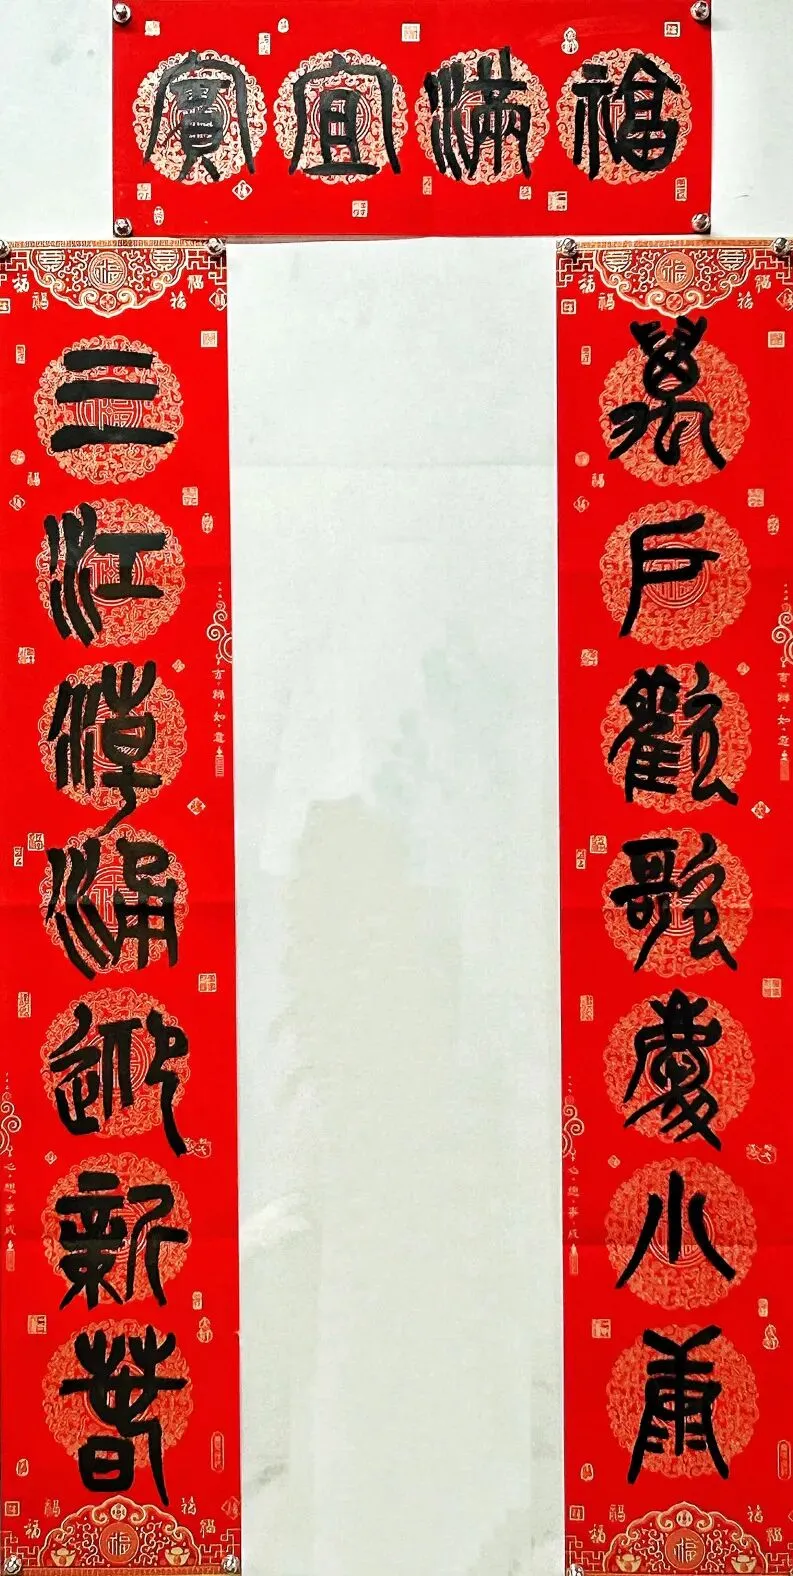 福滿宜賓
萬戶歡歌慶小康
三江潮涌迎新春
吉祥如意
心想事成
吉祥如意
心想事成